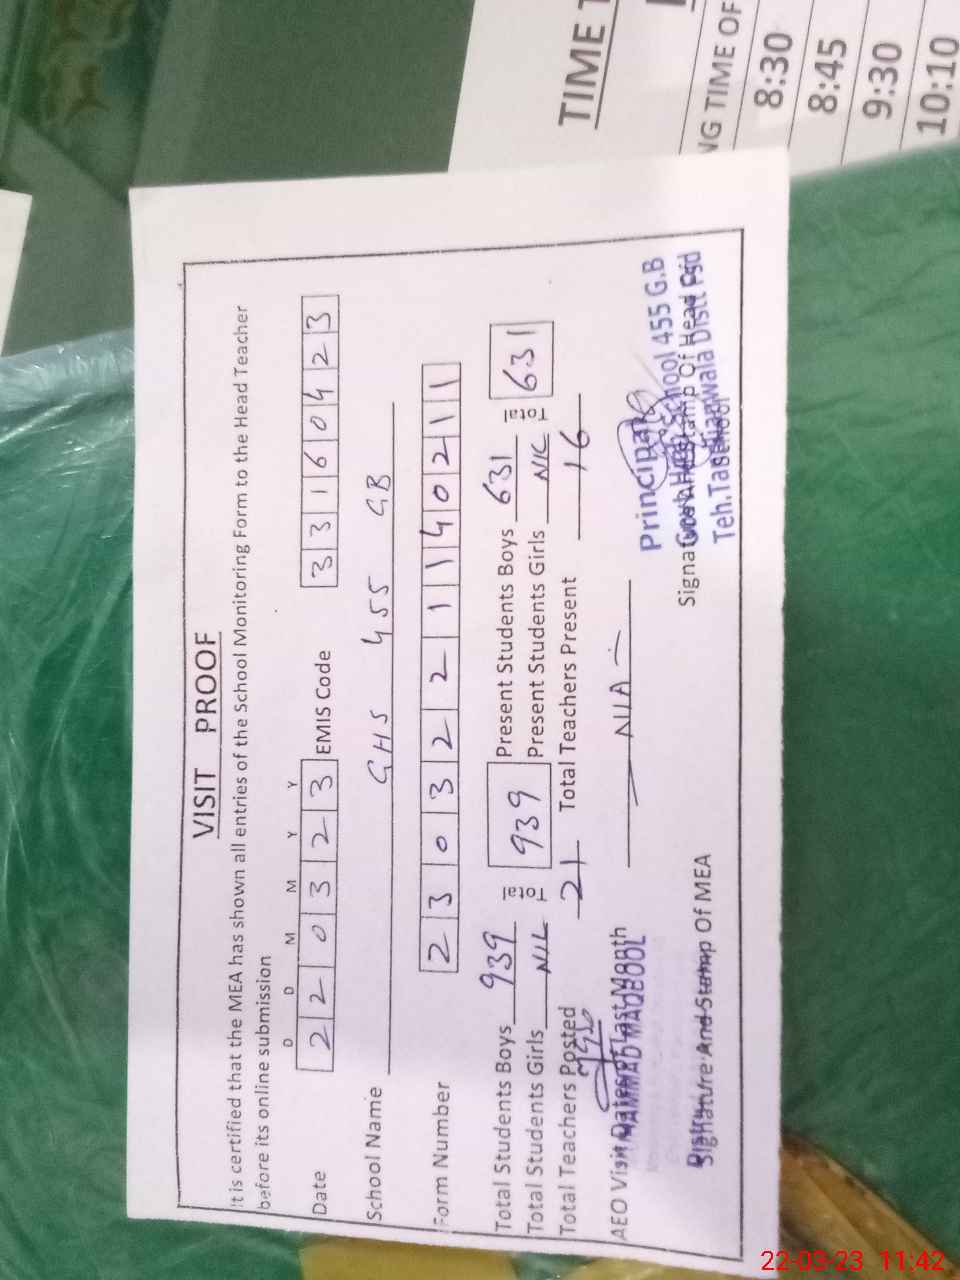 VISIT PROOF
It is certified that the MEA has shown all entries of the School Monitoring Form to the Head Teacher
before its online submission
D D M M Y Y
Date 2 2 0 3 2 3 EMIS Code 3 3 1 6 0 4 2 3
School Name GHS 455 GB
Form Number 2 3 0 3 2 2 1 1 4 0 2 1 1
Total Students Boys 939 Total 939 Present Students Boys 631 Total 631
Total Students Girls NIL Present Students Girls NIL
Total Teachers Posted 21 Total Teachers Present 16
AEO Visit Dates of Last Month NIA
MAQBOOL
Signature And Stamp Of MEA
Principal
School 455 G.B
Signature And Stamp Of Head Of
School
Teh.Tandlianwala Distt Fsd
TIME
NG TIME OF
8:30
8:45
9:30
10:10
22-03-23 11:42